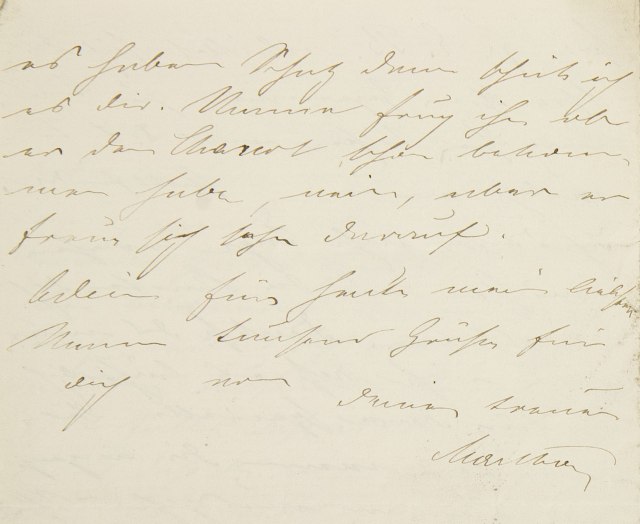 es haben Schatz dann schick ich
es dir. Mama frug ihn ob
er den schon bekom-
men habe, nein, aber er
freue sich sehr darauf.
Adieu für heute mein liebster
tausend Grüße für
dich von deiner treuen
Martha